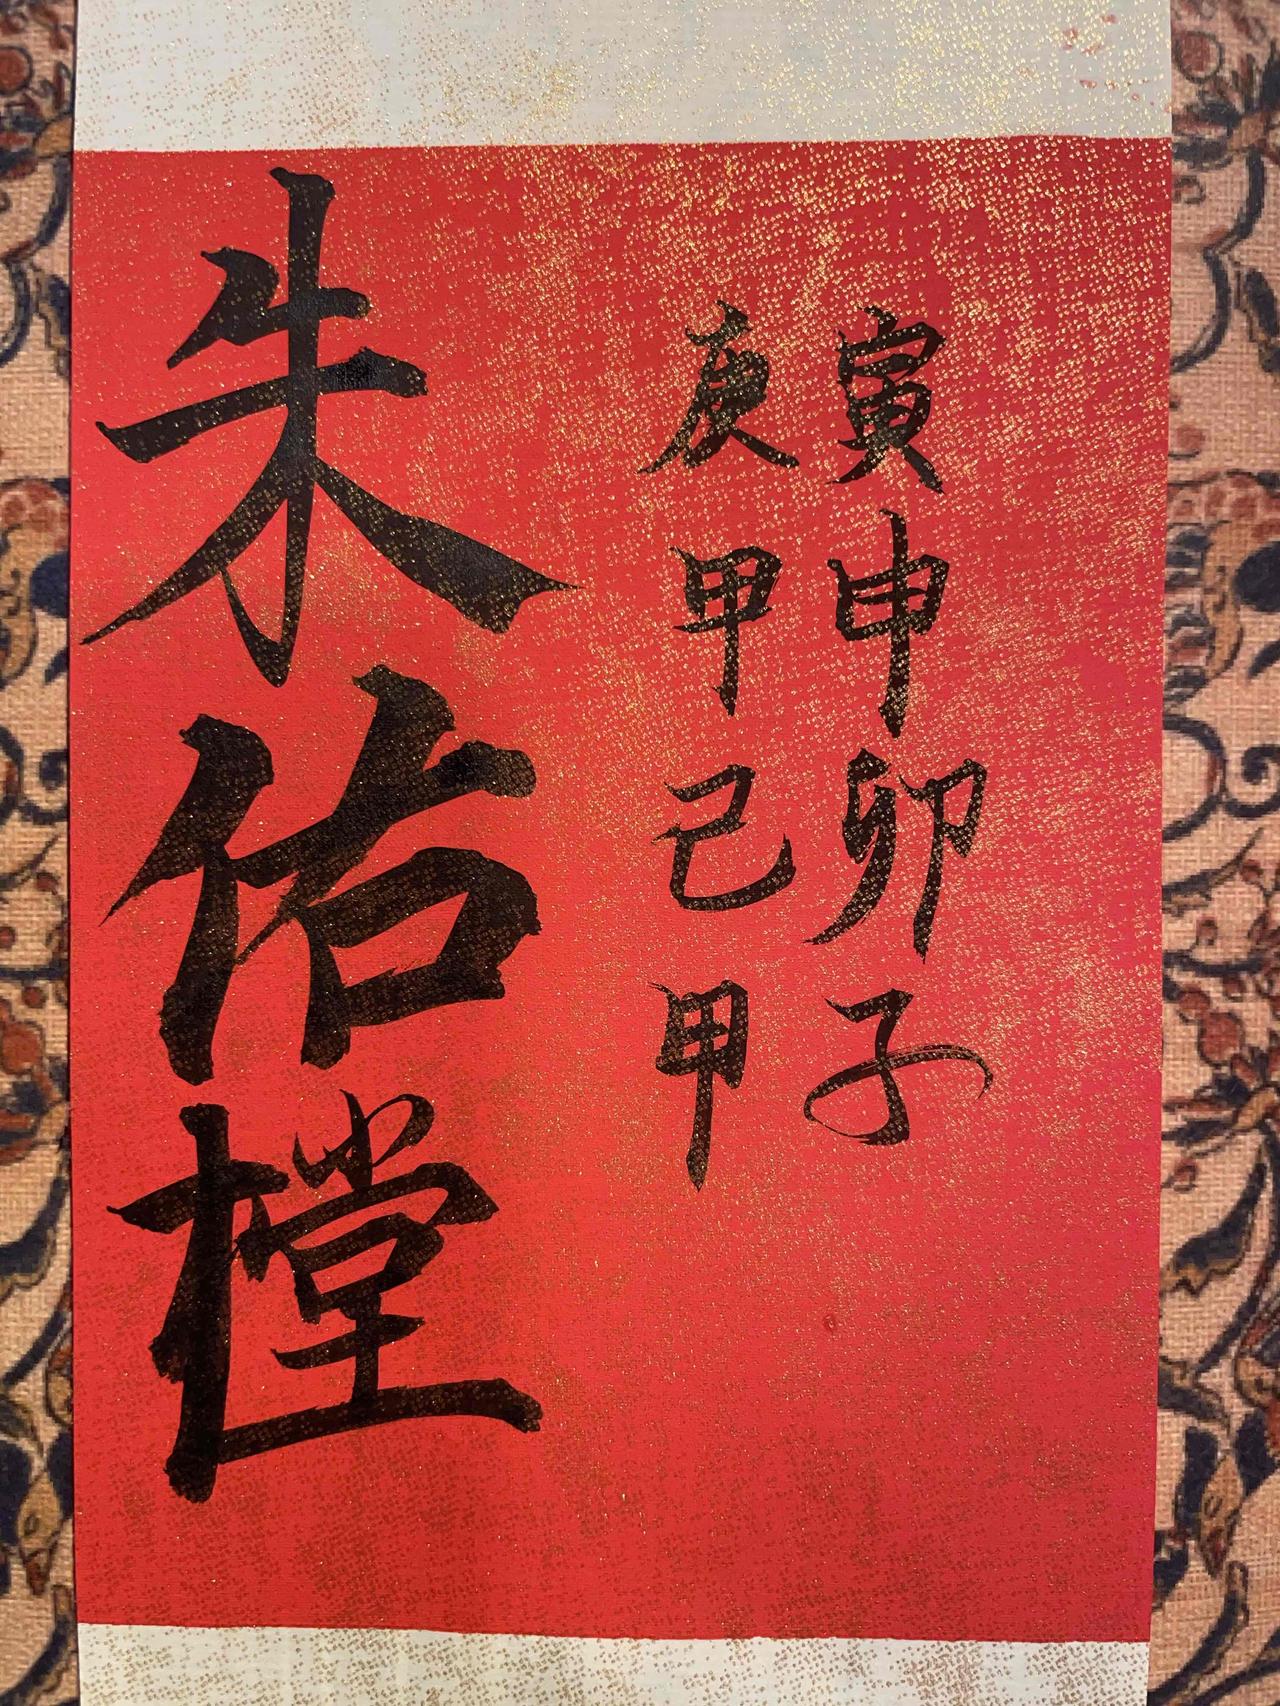 寅申卯子
庚甲己甲
朱佑樘